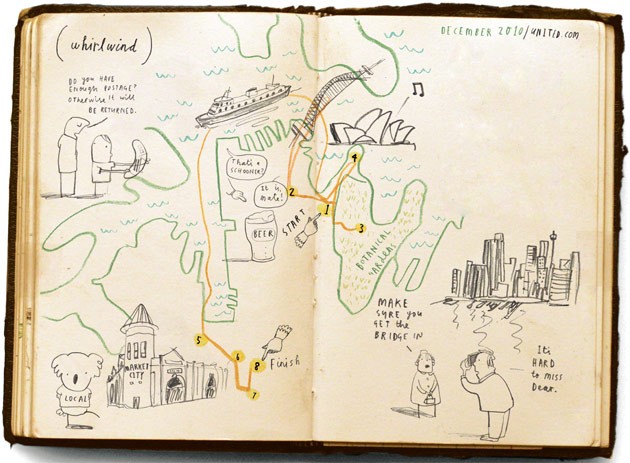 (whirlwind)
DECEMBER 2010/UNITED.COM
DO YOU HAVE
ENOUGH POSTAGE?
OTHERWISE it will
BE RETURNED.
That's a
SCHOONER?
It is
mate!
BEER
START
1
2
3
4
BOTANICAL
GARDENS
5
6
7
8
Finish
MARKET
CITY
LOCAL
MAKE
SURE you
GET the
BRIDGE IN
It's
HARD
to miss
Dear.